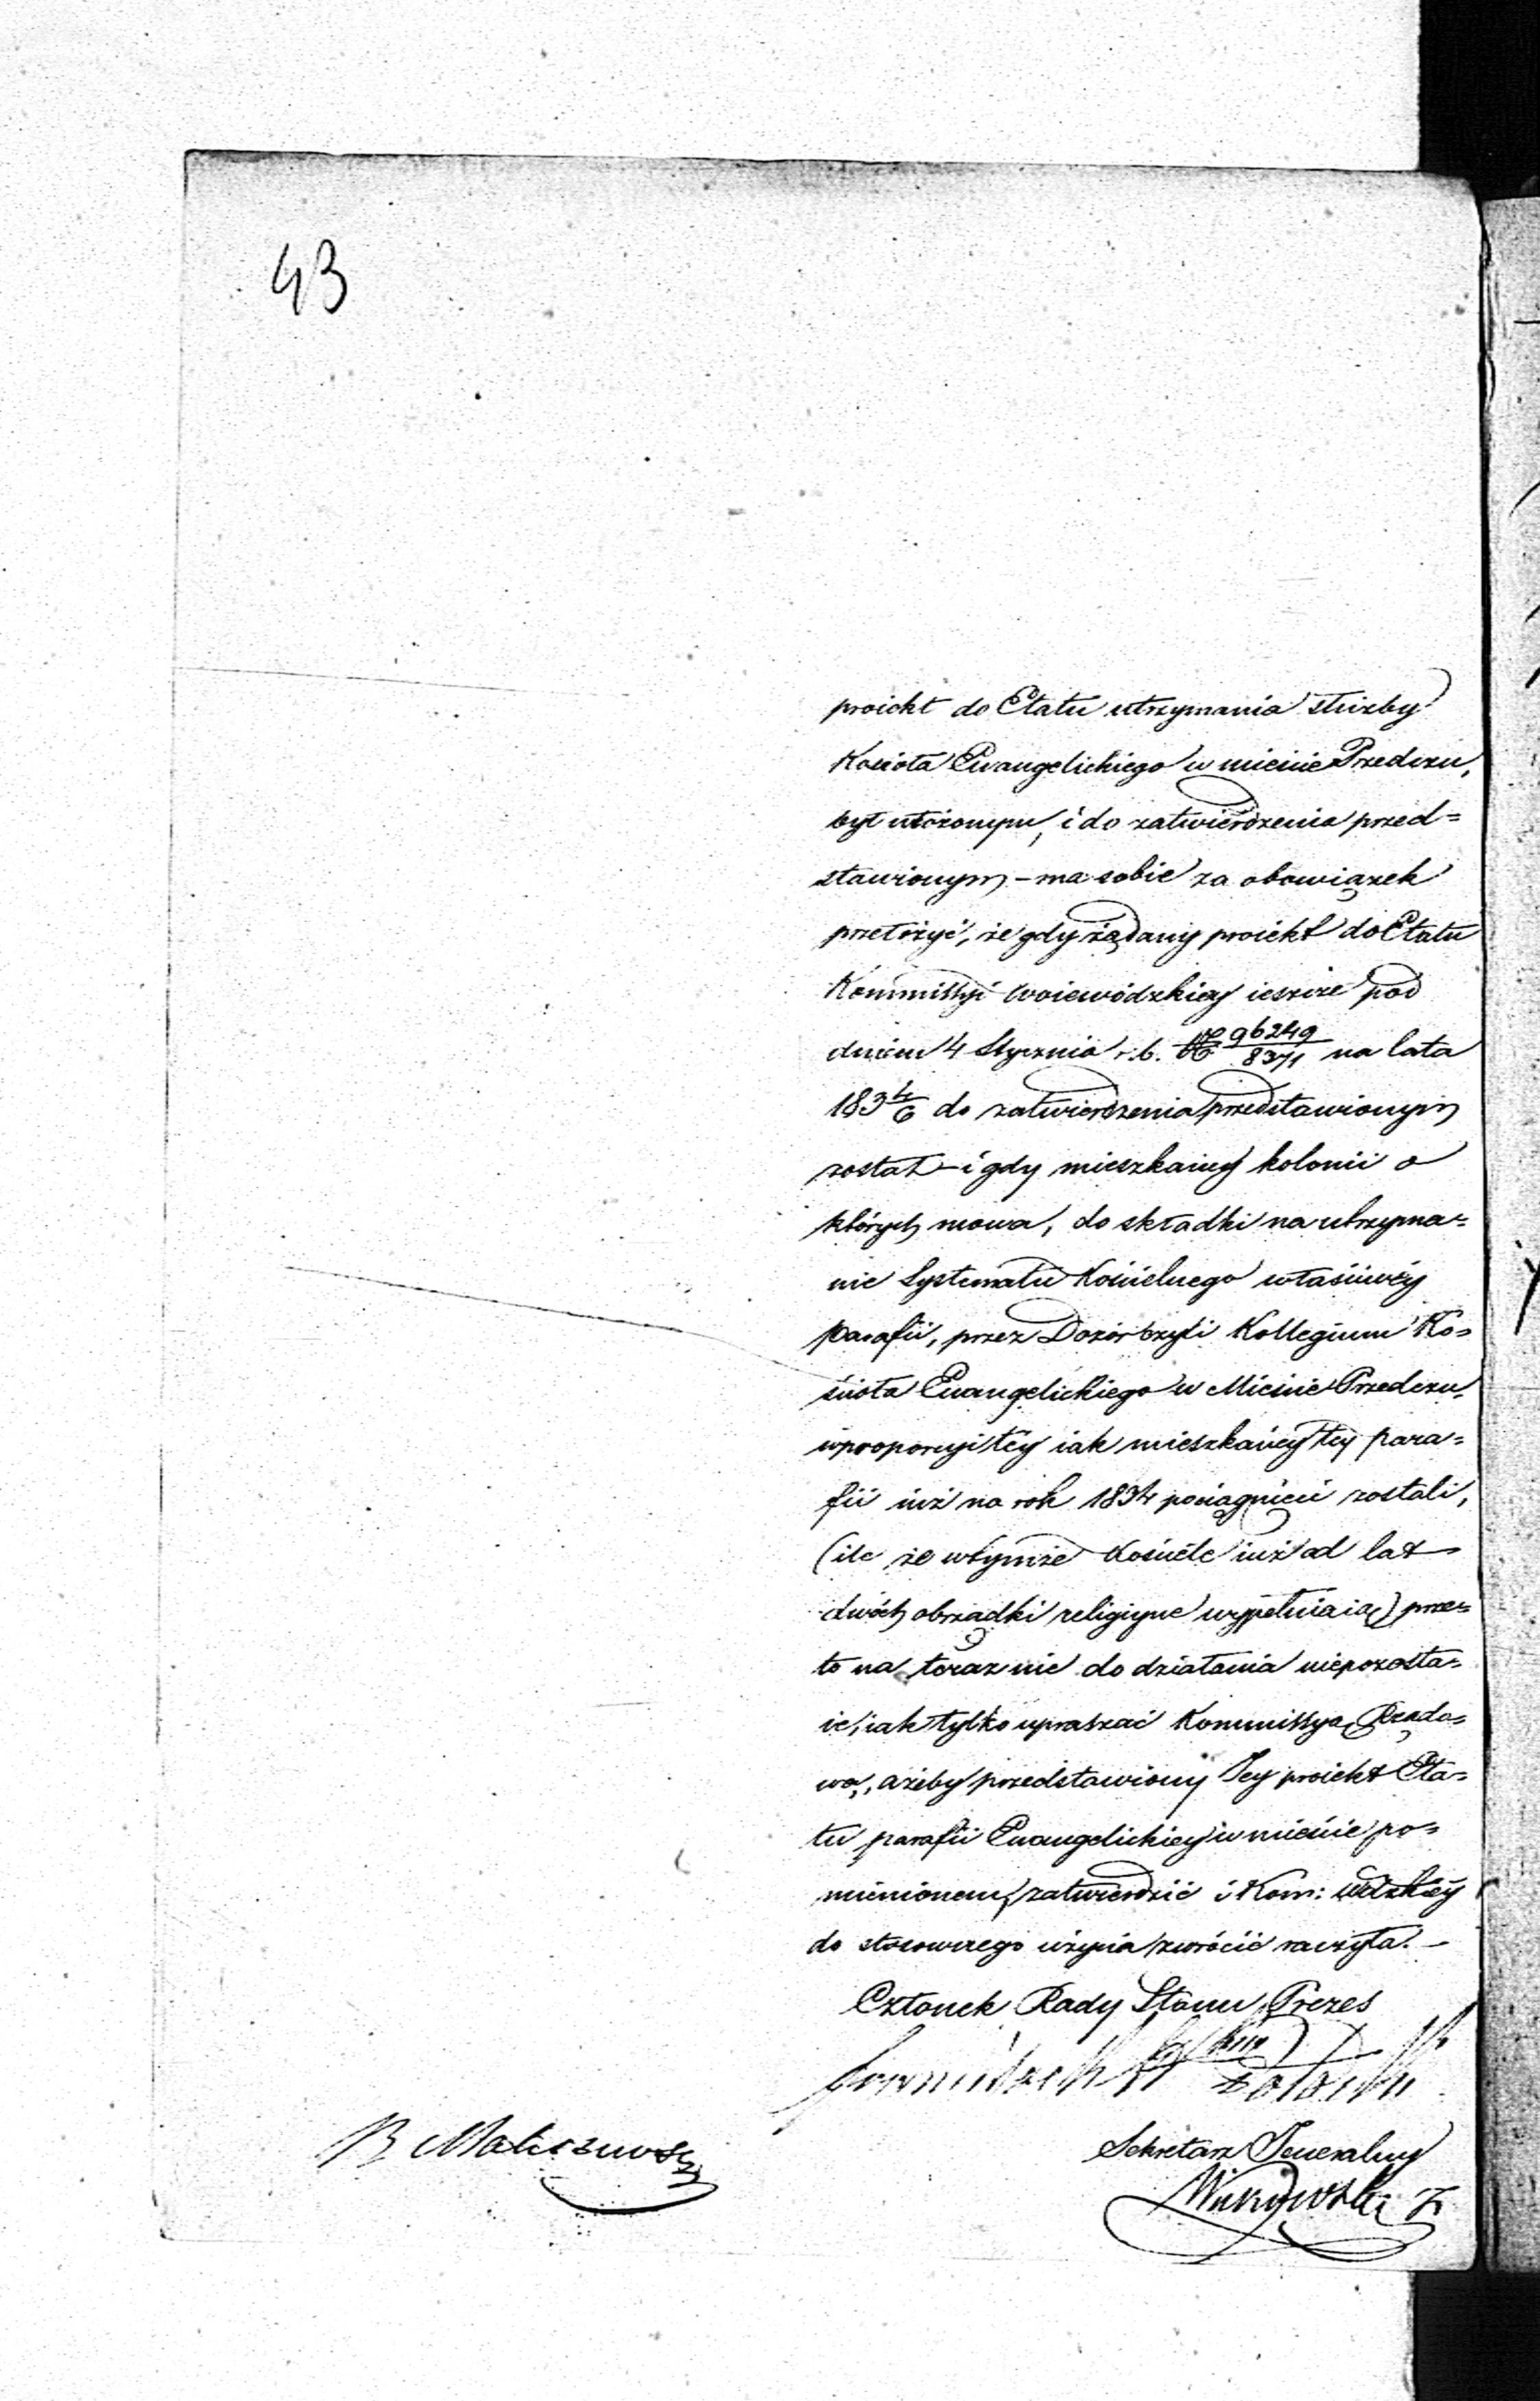 43
proiekt do Etatu utrzymania służby
Kościoła Ewangelickiego w mieście Przedczu,
był ułożonym, i do zatwierdzenia przed=
stawionym – ma sobie za obowiązek
przełożyć, że gdy żądany proiekt do Etatu
Kommissyi Woiewódzkiey ieszcze pod
dniem 4 Stycznia r. b. N 96249/8371 na lata
1834/6 do zatwierdzenia przedstawionym
został – i gdy mieszkańcy kolonii o
których mowa, do składki na utrzyma=
nie Systematu Kościelnego właściwéy
Parafii, przez Dozór czyli Kollegium Ko=
ścioła Ewangelickiego w Mieście Przedczu,
w proporcyi téy iak mieszkańcy tey para=
fii iuż na rok 1834 pociągnięci zostali,
(ile że w tymże Kościele iuż od lat
dwóch obrządki religiyne wypełniaią) prze=
to na teraz nic do działania niepozosta=
ie, iak tylko upraszać Kommissyą Rządo=
wą, ażeby przedstawiony Jey proiekt Eta=
tu parafii Ewangelickiey w mieście po=
mienionem, zatwierdzić i Kom: Wdzkiéy
do stosownego użycia zwrócić raczyła. –
Członek Rady Stanu, Prezes
Sekretarz Jeneralny